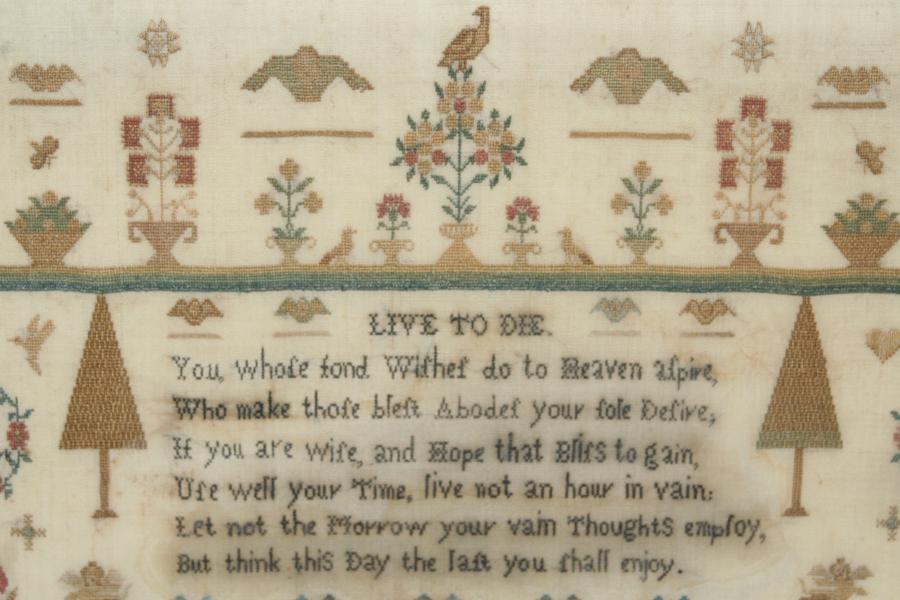 LIVE TO DIE.
You, whoſe fond Wiſheſ do to Heaven aſpire,
Who make thoſe bleſt Abodeſ your ſole Deſire,
If you are wiſe, and Hope that Bliſs to gain,
Uſe well your Time, live not an hour in vain:
Let not the Morrow your vain Thoughts employ,
But think this Day the laſt you ſhall enjoy.